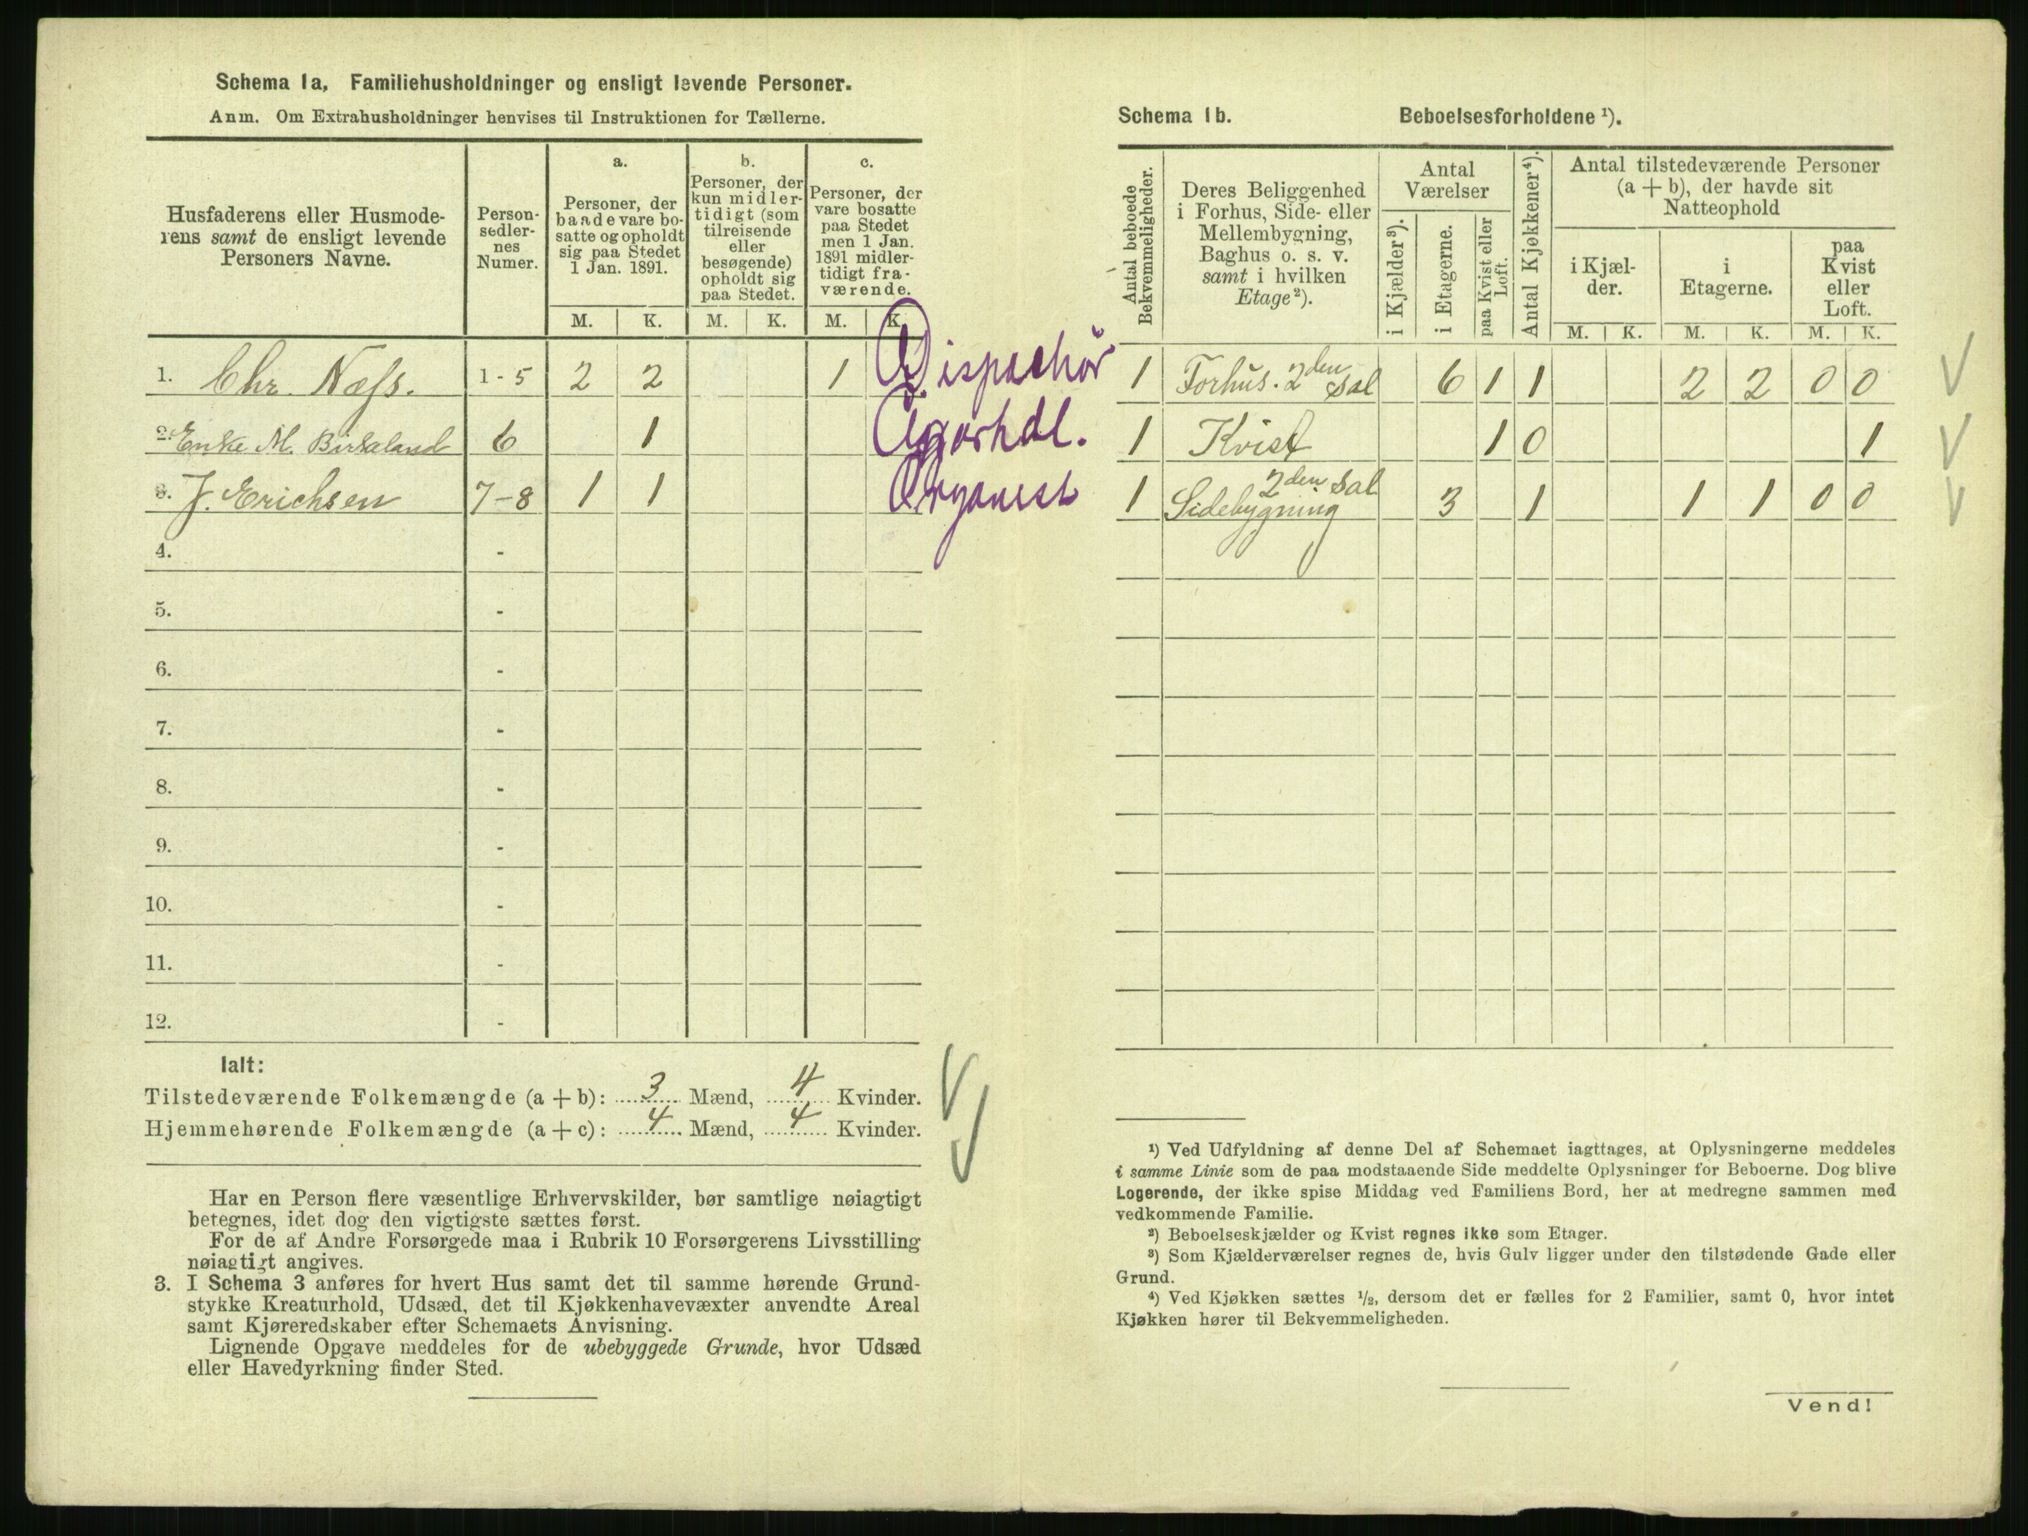 Schema 1a, Familiehusholdninger og ensligt levende Personer.
Anm. Om Extrahusholdninger henvises til Instruktionen for Tællerne.
Husfaderens eller Husmode-
rens samt de ensligt levende
Personers Navne.
Person-
sedler-
nes
Numer.
a.
Personer, der
baade vare bo-
satte og opholdt
sig paa Stedet
1 Jan. 1891.
b.
Personer, der
kun midler-
tidigt (som
tilreisende
eller
besøgende)
opholdt sig
paa Stedet.
c.
Personer, der
vare bosatte
paa Stedet
men 1 Jan.
1891 midler-
tidigt fra-
værende.
M. K. M. K. M. K.
1. Chr. Næss. 1-5 2 2 1 Dispachør
2. Enke M. Birkeland 6 1 Cigarhdl.
3. J. Erichsen 7-8 1 1 Organist
4. -
5. -
6. -
7. -
8. -
9. -
10. -
11. -
12. -
Ialt:
Tilstedeværende Folkemængde (a + b): 3 Mænd, 4 Kvinder.
Hjemmehørende Folkemængde (a + c): 4 Mænd, 4 Kvinder.
Har en Person flere væsentlige Erhvervskilder, bør samtlige nøiagtigt
betegnes, idet dog den vigtigste sættes først.
For de af Andre Forsørgede maa i Rubrik 10 Forsørgerens Livsstilling
nøiagtigt angives.
3. I Schema 3 anføres for hvert Hus samt det til samme hørende Grund-
stykke Kreaturhold, Udsæd, det til Kjøkkenhavevæxter anvendte Areal
samt Kjøreredskaber efter Schemaets Anvisning.
Lignende Opgave meddeles for de ubebyggede Grunde, hvor Udsæd
eller Havedyrkning finder Sted.
Schema 1b. Beboelsesforholdene ¹).
Antal beboede
Bekvemmeligheder.
Deres Beliggenhed
i Forhus, Side- eller
Mellembygning,
Baghus o. s. v.
samt i hvilken
Etage ²).
Antal
Værelser
i Kjælder ³).
i Etagerne.
paa Kvist eller
Loft.
Antal Kjøkkener ⁴).
Antal tilstedeværende Personer
(a + b), der havde sit
Natteophold
i Kjæl-
der.
i
Etagerne.
paa
Kvist
eller
Loft.
M. K. M. K. M. K.
1 Forhus. 2den Sal 6 1 1 2 2 0 0
1 Kvist 1 0 1
1 Sidebygning 2den Sal 3 1 1 1 0 0
¹) Ved Udfyldning af denne Del af Schemaet iagttages, at Oplysningerne meddeles
i samme Linie som de paa modstaaende Side meddelte Oplysninger for Beboerne. Dog blive
Logerende, der ikke spise Middag ved Familiens Bord, her at medregne sammen med
vedkommende Familie.
²) Beboelseskjælder og Kvist regnes ikke som Etager.
³) Som Kjælderværelser regnes de, hvis Gulv ligger under den tilstødende Gade eller
Grund.
⁴) Ved Kjøkken sættes ½, dersom det er fælles for 2 Familier, samt 0, hvor intet
Kjøkken hører til Bekvemmeligheden.
Vend!